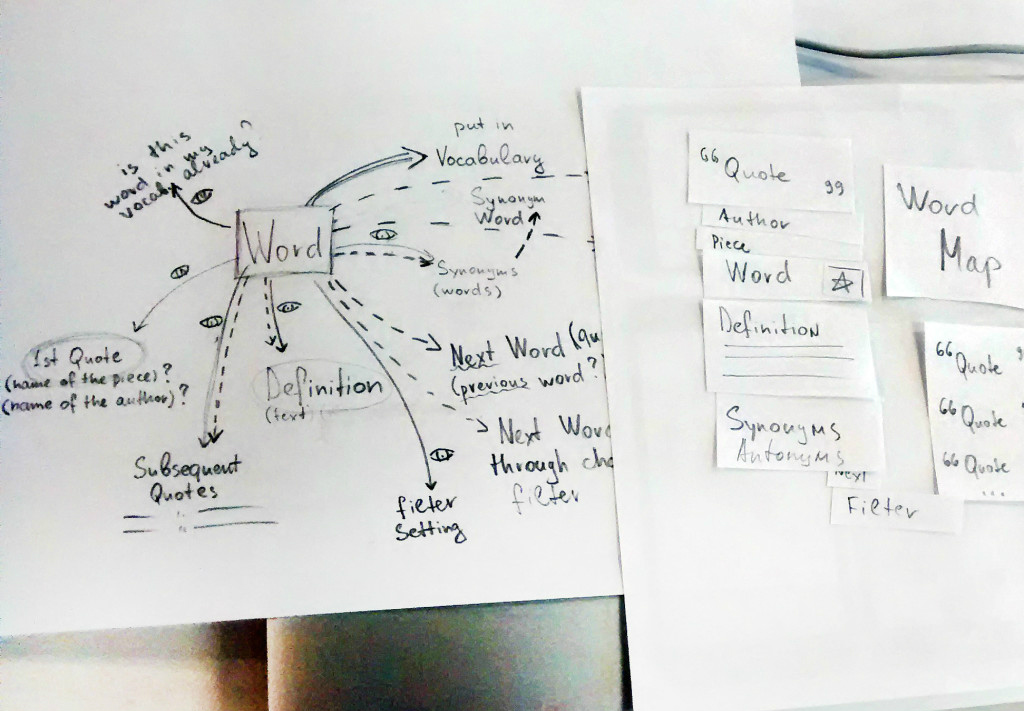 is this
word in my
vocab already?
put in
Vocabulary
Synonym
Word
Word
Synonyms
(words)
1st Quote
(name of the piece)?
(name of the author)?
Definition
(text)
Next Word
(previous word?
Next
through
filter
Subsequent
Quotes
filter
Setting
66 Quote 99
Author
Piece
Word
Definition
Synonyms
Antonyms
Next
Filter
Word
Map
66 Quote
66 Quote
66 Quote
...